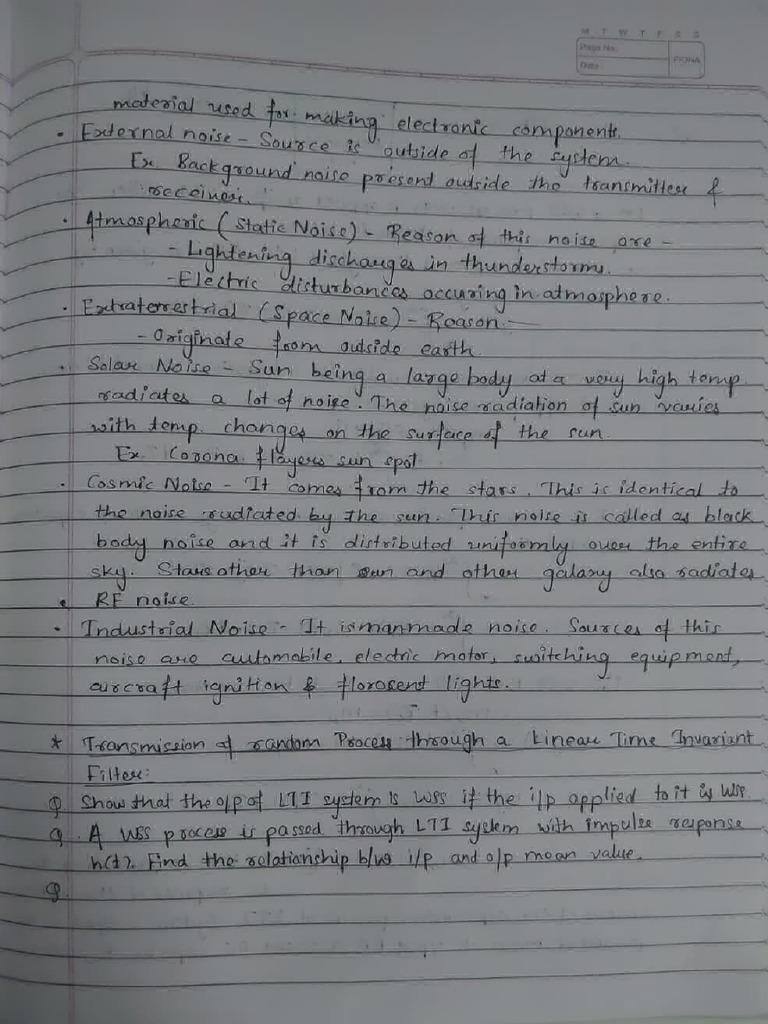 M T W T F S S
Page No.:
Date:
material used for making electronic components.
• External noise - Source is outside of the system.
Ex. Background noise present outside the transmitter &
• Atmospheric (Static Noise) - Reason of this noise are -
- Lightening discharges in thunderstorms.
- Electric disturbances occuring in atmosphere.
• Extraterrestrial (Space Noise) - Reason -
- Originate from outside earth
• Solar Noise - Sun being a large body at a very high temp.
radiates a lot of noise. The noise radiation of sun varies
with temp. changes on the surface of the sun.
Ex. Corona flayers sun spot
• Cosmic Noise - It comes from the stars. This is identical to
the noise radiated by the sun. This noise is called as black
body noise and it is distributed uniformly over the entire
sky. Stars other than sun and other galaxy also radiates
• RF noise.
• Industrial Noise - It is manmade noise. Sources of this
noise are automobile, electric motor, switching equipment,
aircraft ignition & florosent lights.
* Transmission of random Process through a Linear Time Invariant
Filter:
Q Show that the o/p of LTI system is WSS if the i/p applied to it is WSS
Q. A WSS process is passed through LTI system with impulse response
h(t). Find the relationship b/w i/p and o/p mean value.
Q.